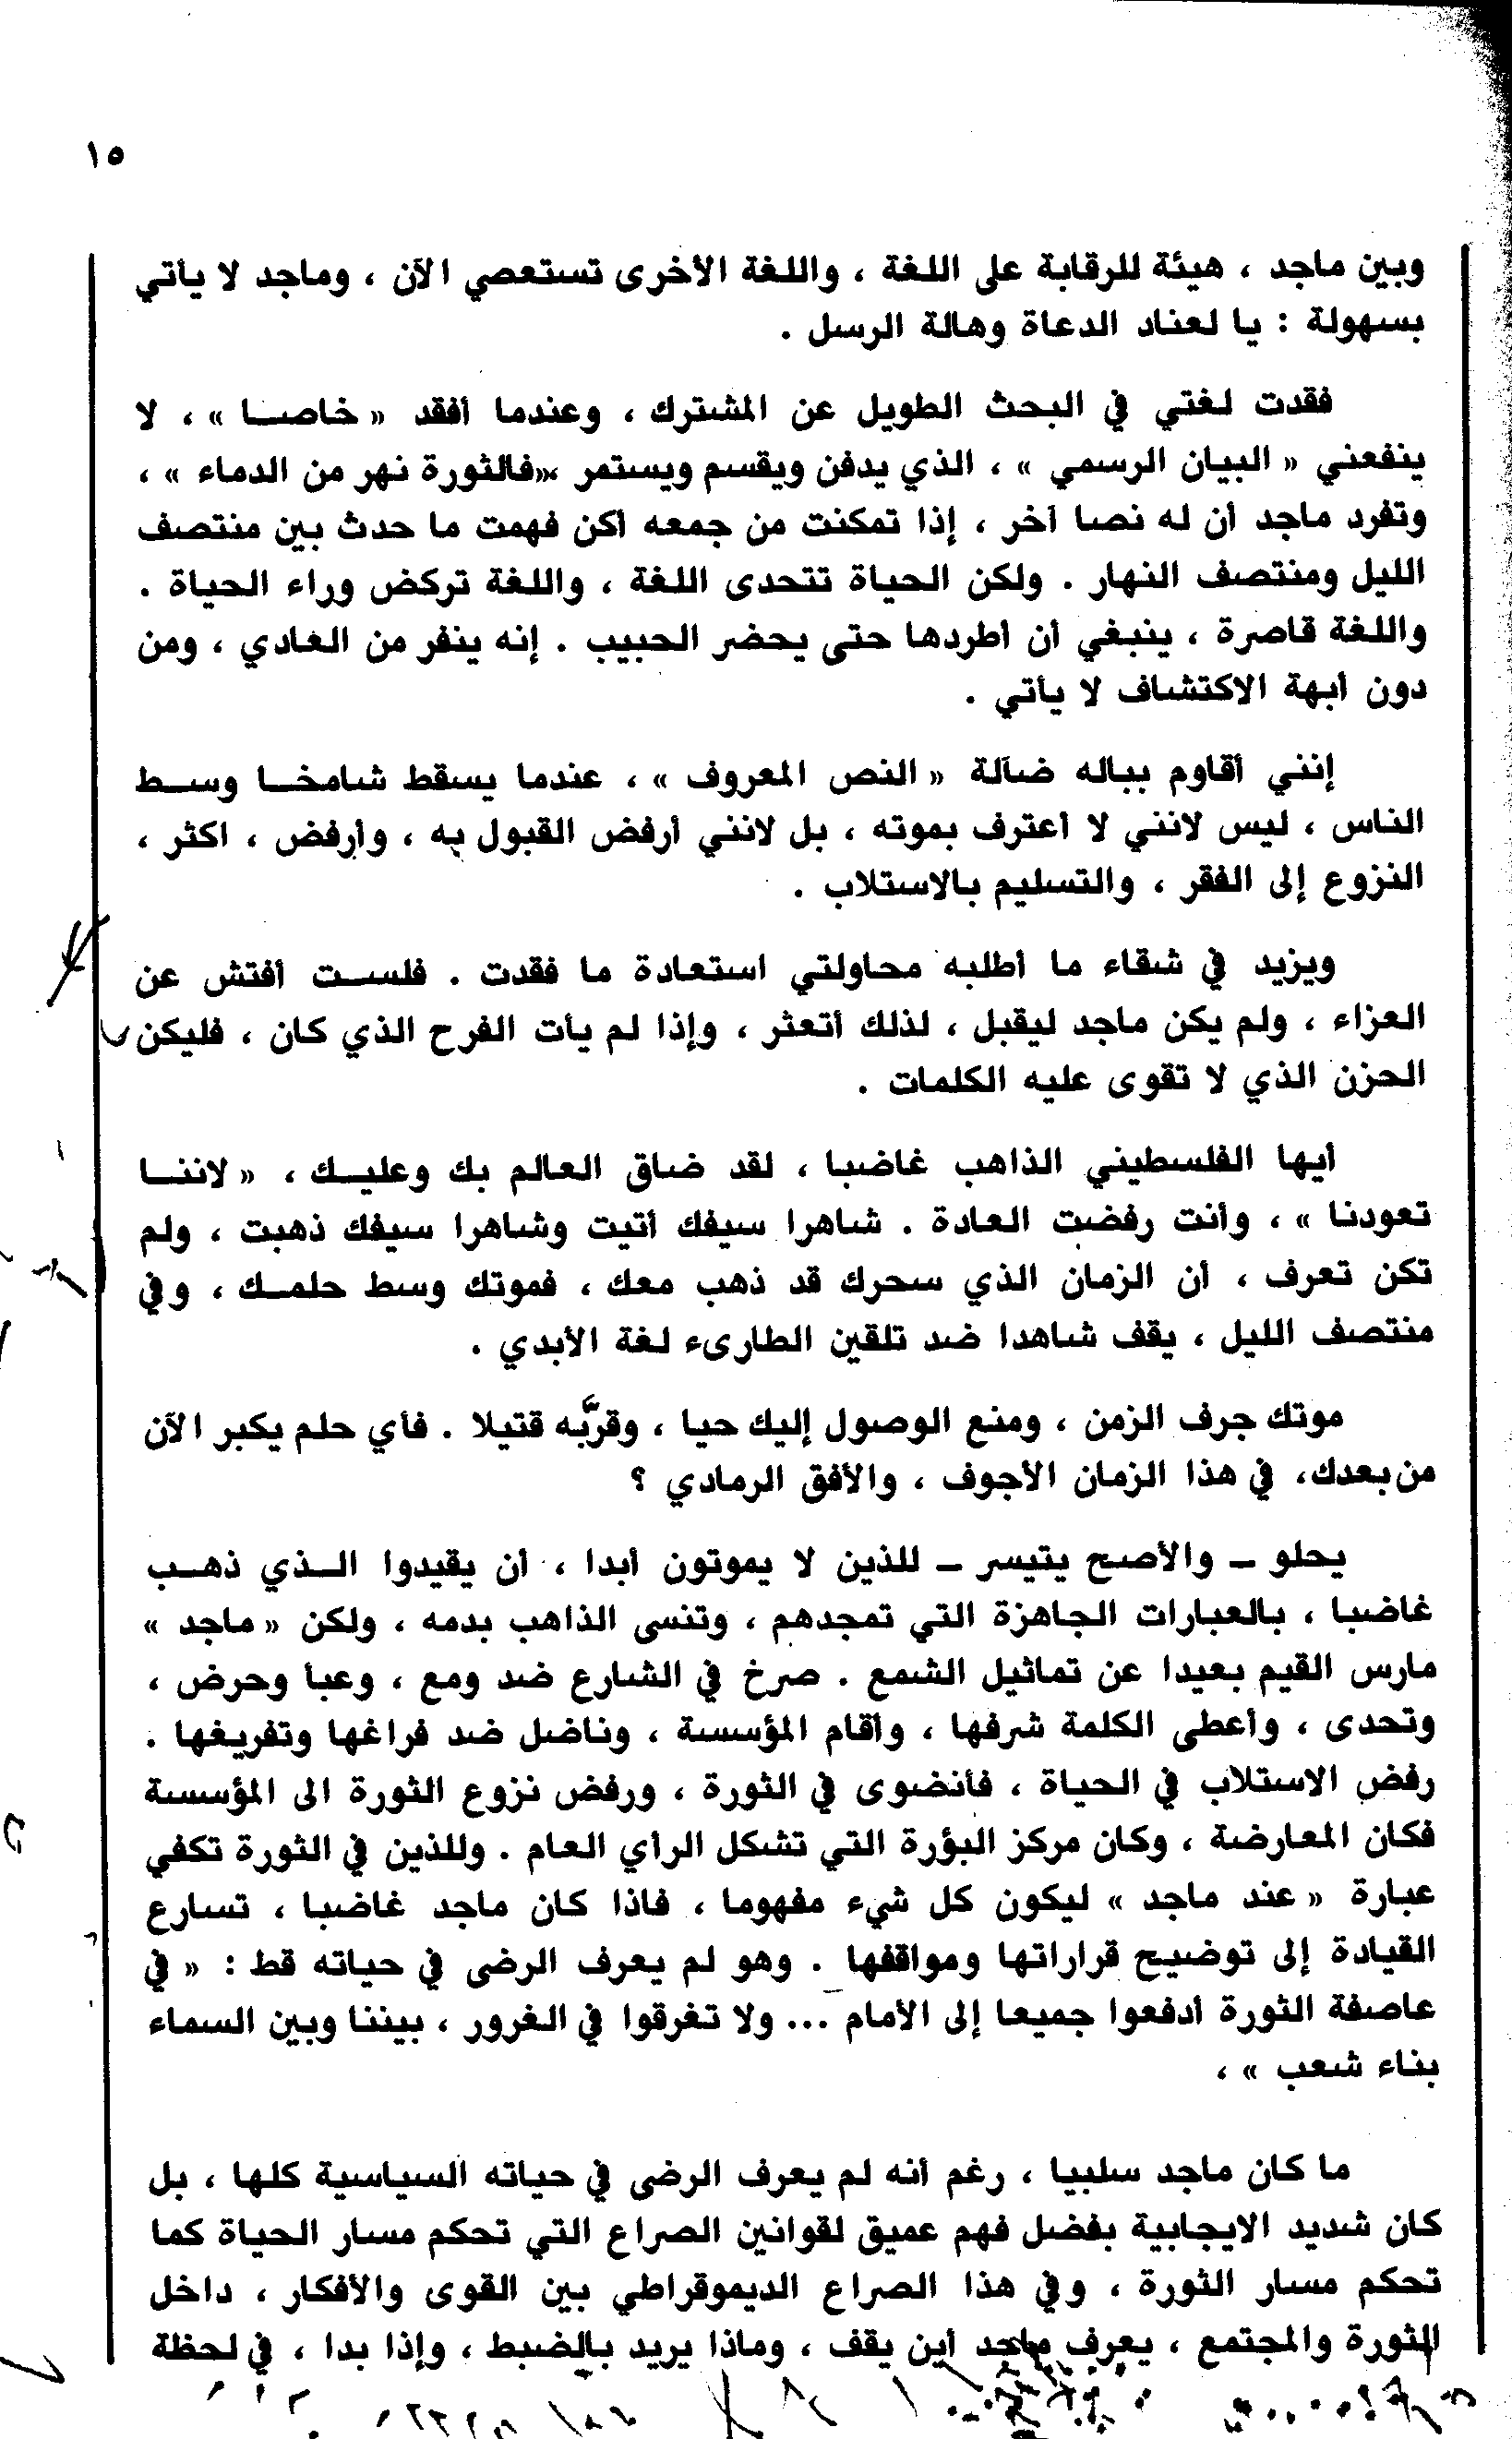 ١٥
وبين ماجد ، هيئة للرقابة على اللغة ، واللغة الأخرى تستعصي الآن ، وماجد لا يأتي
بسهولة : يا لعناد الدعاة وهالة الرسل .
فقدت لغتي في البحث الطويل عن المشترك ، وعندما أفقد « خاصــا » ، لا
ينفعني « البيان الرسمي » ، الذي يدفن ويقسم ويستمر ،«فالثورة نهر من الدماء » ،
وتفرد ماجد أن له نصا أخر ، إذا تمكنت من جمعه أكن فهمت ما حدث بين منتصف
الليل ومنتصف النهار . ولكن الحياة تتحدى اللغة ، واللغة تركض وراء الحياة .
واللغة قاصرة ، ينبغي أن أطردها حتى يحضر الحبيب . إنه ينفر من العادي ، ومن
دون أبهة الاكتشاف لا يأتي .
إنني أقاوم بباله ضآلة « النص المعروف » ، عندما يسقط شامخــا وســط
الناس ، ليس لانني لا أعترف بموته ، بل لانني أرفض القبول به ، وأرفض ، اكثر ،
النزوع إلى الفقر ، والتسليم بالاستلاب .
ويزيد في شقاء ما أطلبه محاولتي استعادة ما فقدت . فلســت أفتش عن
العزاء ، ولم يكن ماجد ليقبل ، لذلك أتعثر ، وإذا لم يأت الفرح الذي كان ، فليكن
الحزن الذي لا تقوى عليه الكلمات .
أيها الفلسطيني الذاهب غاضبا ، لقد ضاق العالم بك وعليــك ، « لاننــا
تعودنا » ، وأنت رفضت العادة . شاهرا سيفك أتيت وشاهرا سيفك ذهبت ، ولم
تكن تعرف ، أن الزمان الذي سحرك قد ذهب معك ، فموتك وسط حلمــك ، وفي
منتصف الليل ، يقف شاهدا ضد تلقين الطارىء لغة الأبدي .
موتك جرف الزمن ، ومنع الوصول إليك حيا ، وقربَّه قتيلا . فأي حلم يكبر الآن
من بعدك، في هذا الزمان الأجوف ، والأفق الرمادي ؟
يحلو ــ والأصح يتيسر ــ للذين لا يموتون أبدا ، أن يقيدوا الــذي ذهــب
غاضبا ، بالعبارات الجاهزة التي تمجدهم ، وتنسى الذاهب بدمه ، ولكن « ماجد »
مارس القيم بعيدا عن تماثيل الشمع . صرخ في الشارع ضد ومع ، وعبأ وحرض ،
وتحدى ، وأعطى الكلمة شرفها ، وأقام المؤسسة ، وناضل ضد فراغها وتفريغها .
رفض الاستلاب في الحياة ، فأنضوى في الثورة ، ورفض نزوع الثورة الى المؤسسة
فكان المعارضة ، وكان مركز البؤرة التي تشكل الرأي العام . وللذين في الثورة تكفي
عبارة « عند ماجد » ليكون كل شيء مفهوما ، فاذا كان ماجد غاضبا ، تسارع
القيادة إلى توضيح قراراتها ومواقفها . وهو لم يعرف الرضى في حياته قط : « في
عاصفة الثورة أدفعوا جميعا إلى الأمام ... ولا تغرقوا في الغرور ، بيننا وبين السماء
بناء شعب » ،
ما كان ماجد سلبيا ، رغم أنه لم يعرف الرضى في حياته السياسية كلها ، بل
كان شديد الايجابية بفضل فهم عميق لقوانين الصراع التي تحكم مسار الحياة كما
تحكم مسار الثورة ، وفي هذا الصراع الديموقراطي بين القوى والأفكار ، داخل
الثورة والمجتمع ، يعرف ماجد أين يقف ، وماذا يريد بالضبط ، وإذا بدا ، في لحظة